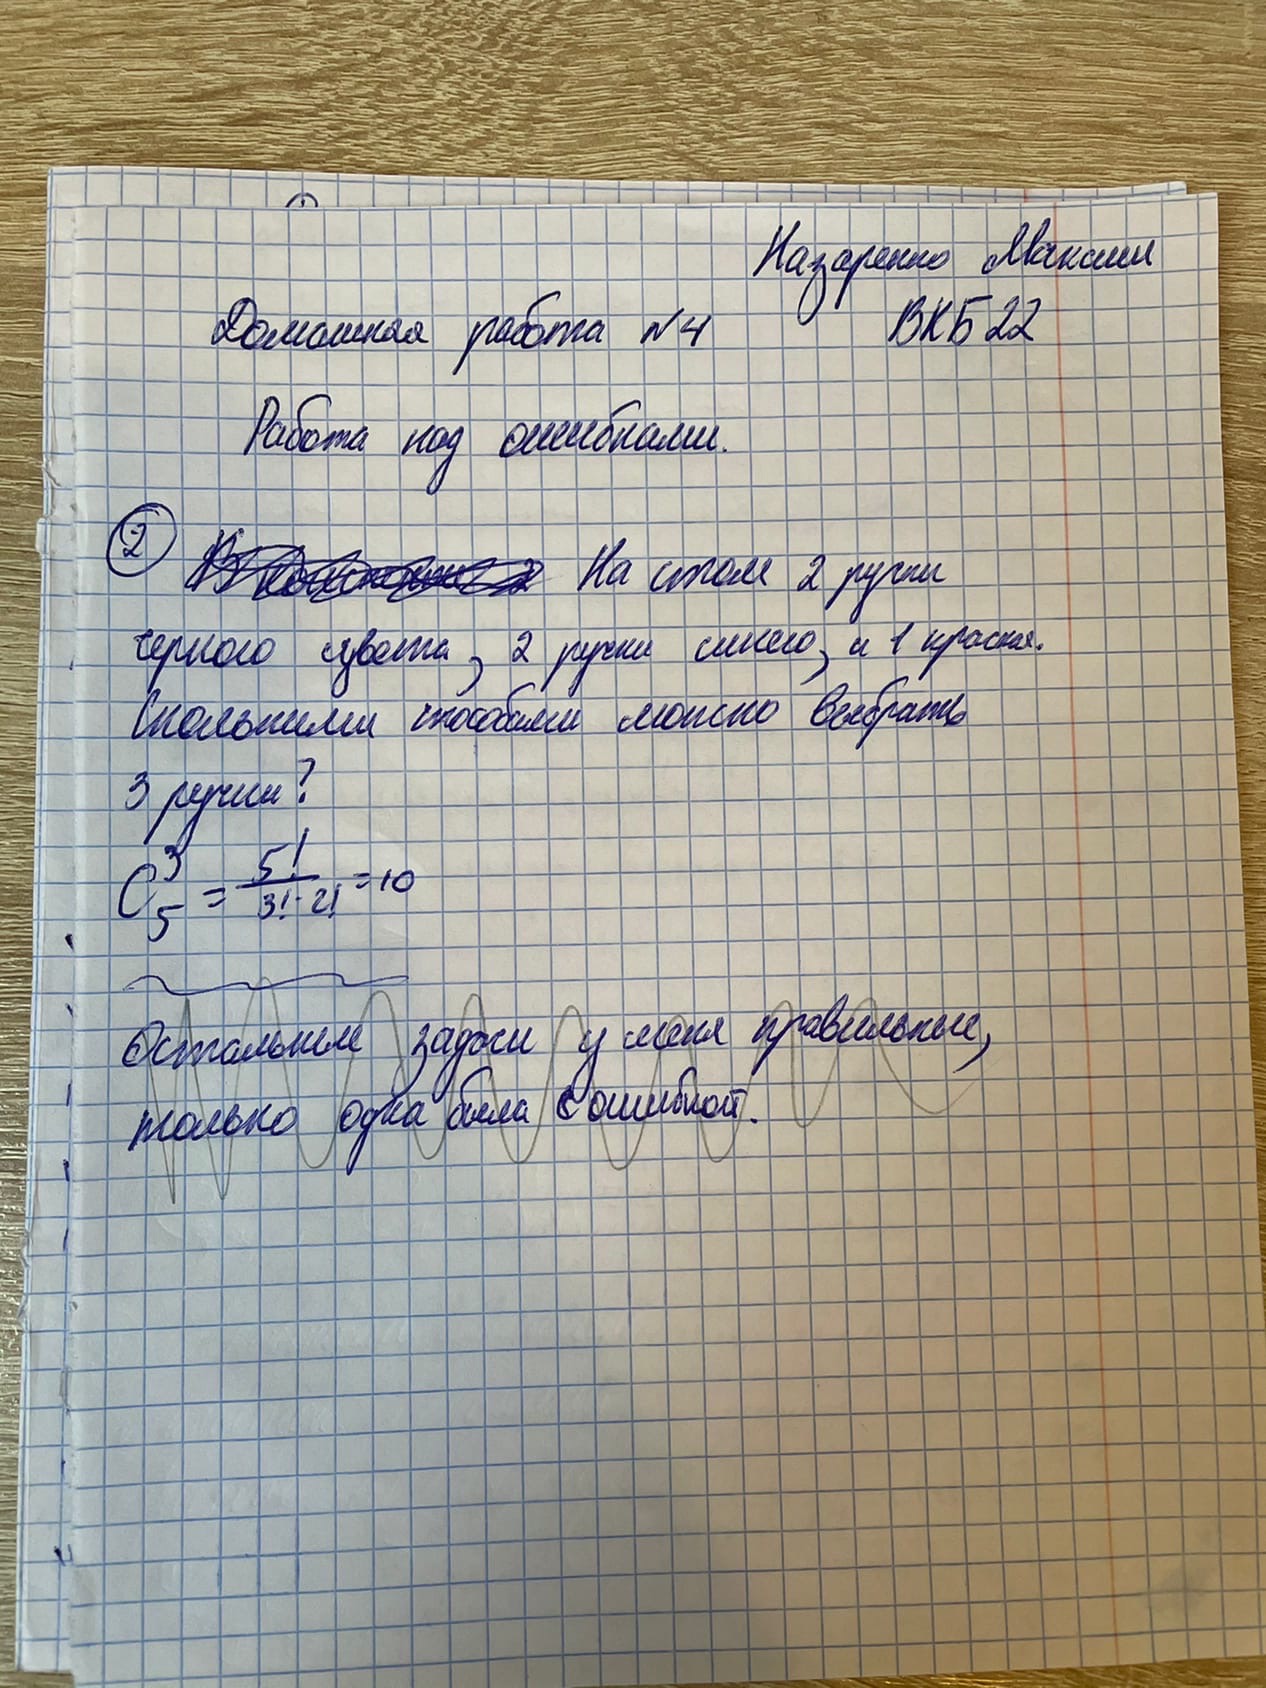 Назаренко Максим
Домашняя работа №4 ВКБ22
Работа над ошибками.
2 На столе 2 ручки
черного цвета, 2 ручки синего, и 1 красная.
Сколькими способами можно выбрать
3 ручки?
C₅³ = 5!/(3!·2!) = 10
Остальные задачи у меня правильные,
только одна была с ошибкой.